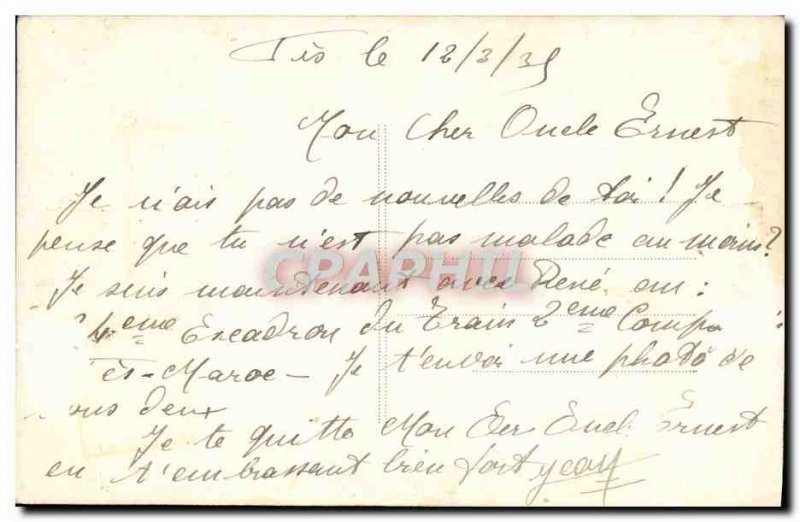 Fès le 12/3/35
Mon Cher Oncle Ernest
Je n'ais pas de nouvelles de toi ! Je
pense que tu n'est pas malade au moins ?
CPARPHIL
Je suis maintenant avec René au :
4eme Escadron du Train 2eme Comp
ès - Maroc - Je t'envoi une photo de
ous deux
Je te quitte Mon Cer Encl Ernest
en t'embrassant bien fort